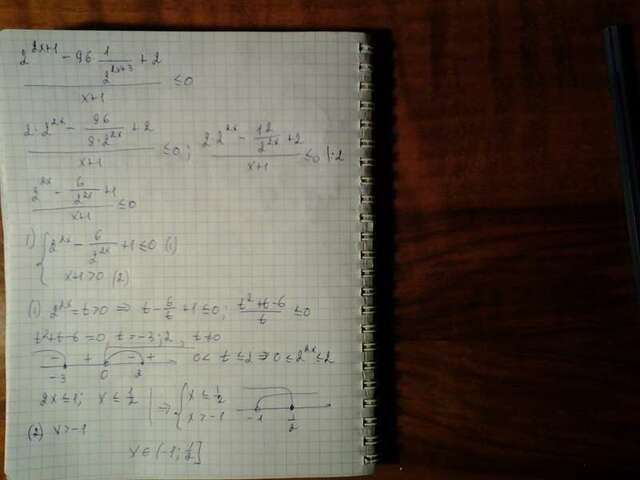 2^{2x+1} - 96 · 1/2^{2x+3} + 2 / x+1 ≤ 0
2·2^{2x} - 96/8·2^{2x} + 2 / x+1 ≤ 0 ; 2·2^{2x} - 12/2^{2x} + 2 / x+1 ≤ 0 |:2
2^{2x} - 6/2^{2x} + 1 / x+1 ≤ 0
1) { 2^{2x} - 6/2^{2x} + 1 ≤ 0 (1)
x+1 > 0 (2)
(1) 2^{2x} = t > 0 ⇒ t - 6/t + 1 ≤ 0 ; t²+t-6 / t ≤ 0
t²+t-6=0, t=-3; 2, t≠0
- + - + 0 < t ≤ 2 ⇒ 0 ≤ 2^{2x} ≤ 2
-3 0 2
2x ≤ 1; x ≤ 1/2 | ⇒ { x ≤ 1/2
x > -1 -1 1/2
(2) x > -1
x ∈ (-1; 1/2]